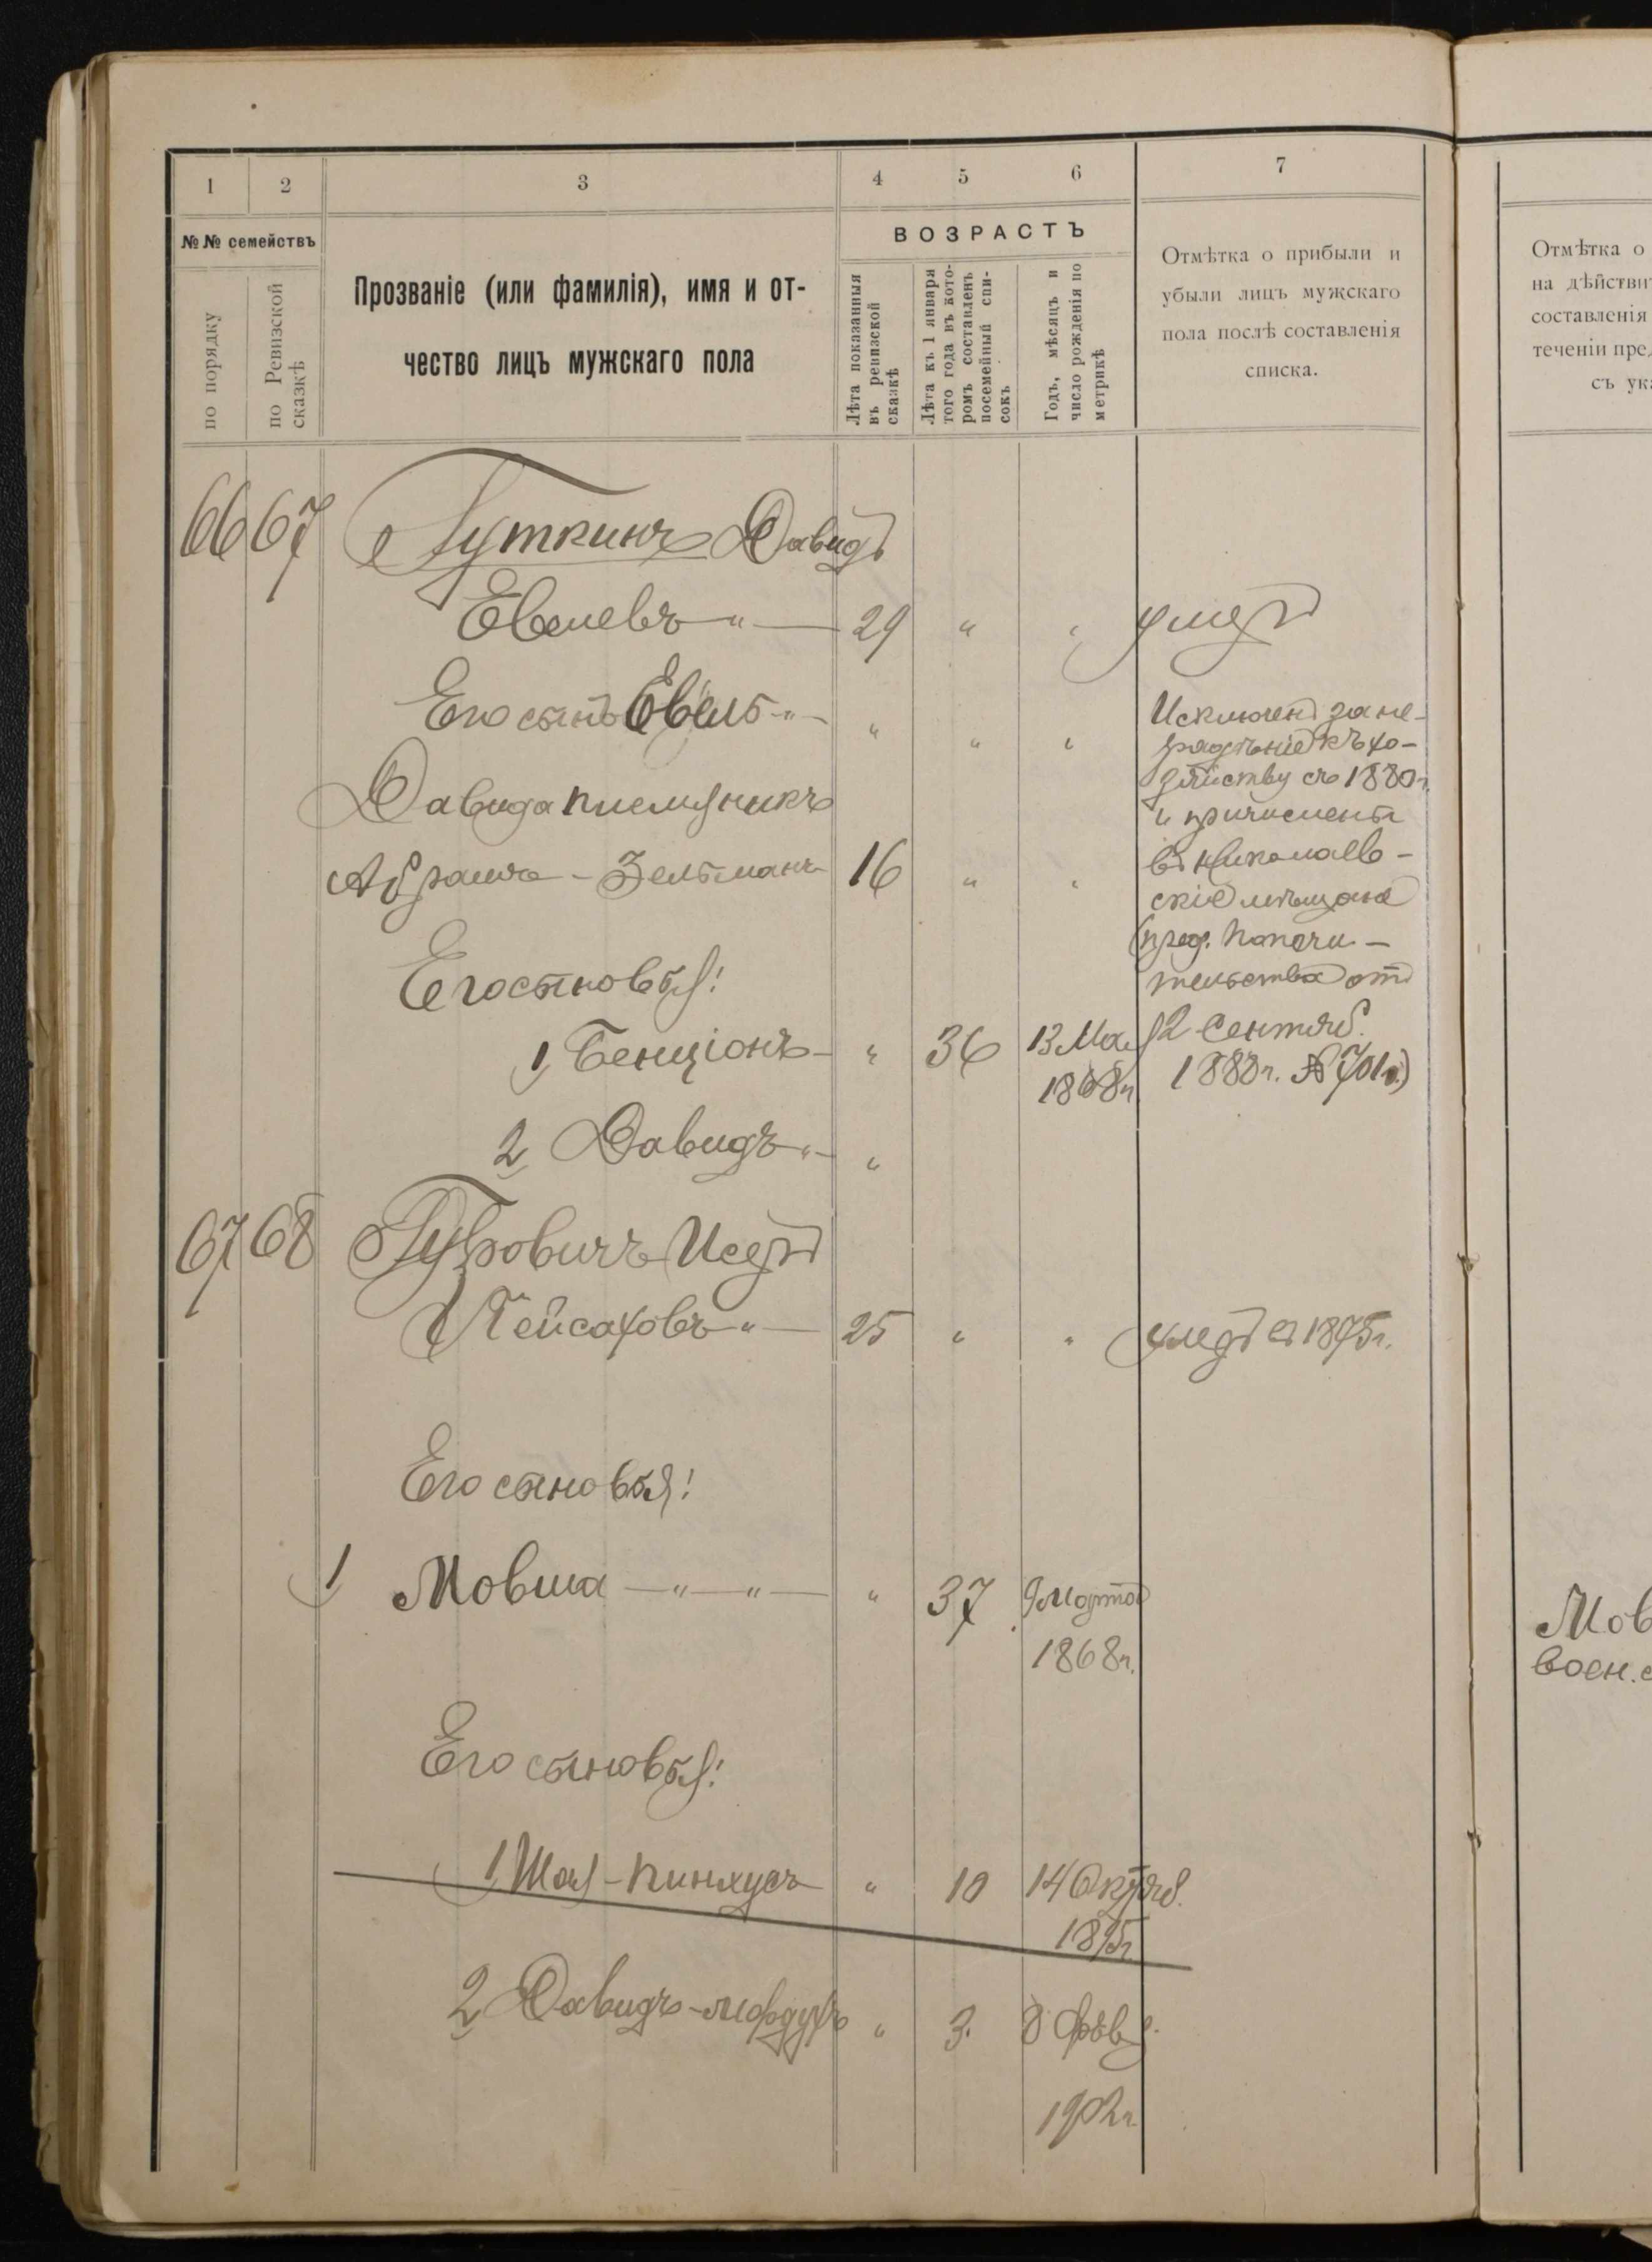 1 2 3 4 5 6 7
№№ семействъ
по порядку
по Ревизской сказкѣ
Прозваніе (или фамилія), имя и от-
чество лицъ мужскаго пола
ВОЗРАСТЪ
Лѣта показанныя
въ ревизской
сказкѣ
Лѣта къ 1 января
того года въ кото-
ромъ составленъ
посемейный спи-
сокъ
Годъ, мѣсяцъ и
число рожденія по
метрикѣ
Отмѣтка о прибыли и
убыли лицъ мужскаго
пола послѣ составленія
списка.
66 67 Гуткинъ Давидъ
Евелевъ " 29 " " умеръ
Его сынъ Евель " " " "
Давида племянникъ
Абрамъ-Зельманъ 16 " "
Исключенъ за не-
радѣніе къ хо-
зяйству съ 1880г.
и причисленъ
въ Николаев-
скіе мѣщане
(пред. Попечи-
тельства отъ
2 Сентяб.
1888г. №701)
Его сыновья:
1 Бенціонъ " 36 13 Мая
1868г.
2 Давидъ " "
67 68 Гуровичъ Исеръ
Пейсаховъ " 25 " " умеръ въ 1895г.
Его сыновья:
1 Мовша " " " 37 9 Марта
1868г.
Его сыновья:
1 Шая-Пинхусъ " 10 14 Октяб.
1895г.
2 Давидъ-Мордухъ " 3. 8 Февр.
1902г.
Отмѣтка о
на дѣйстви
составленія
теченіи пре
съ ук
Мов
воен. с